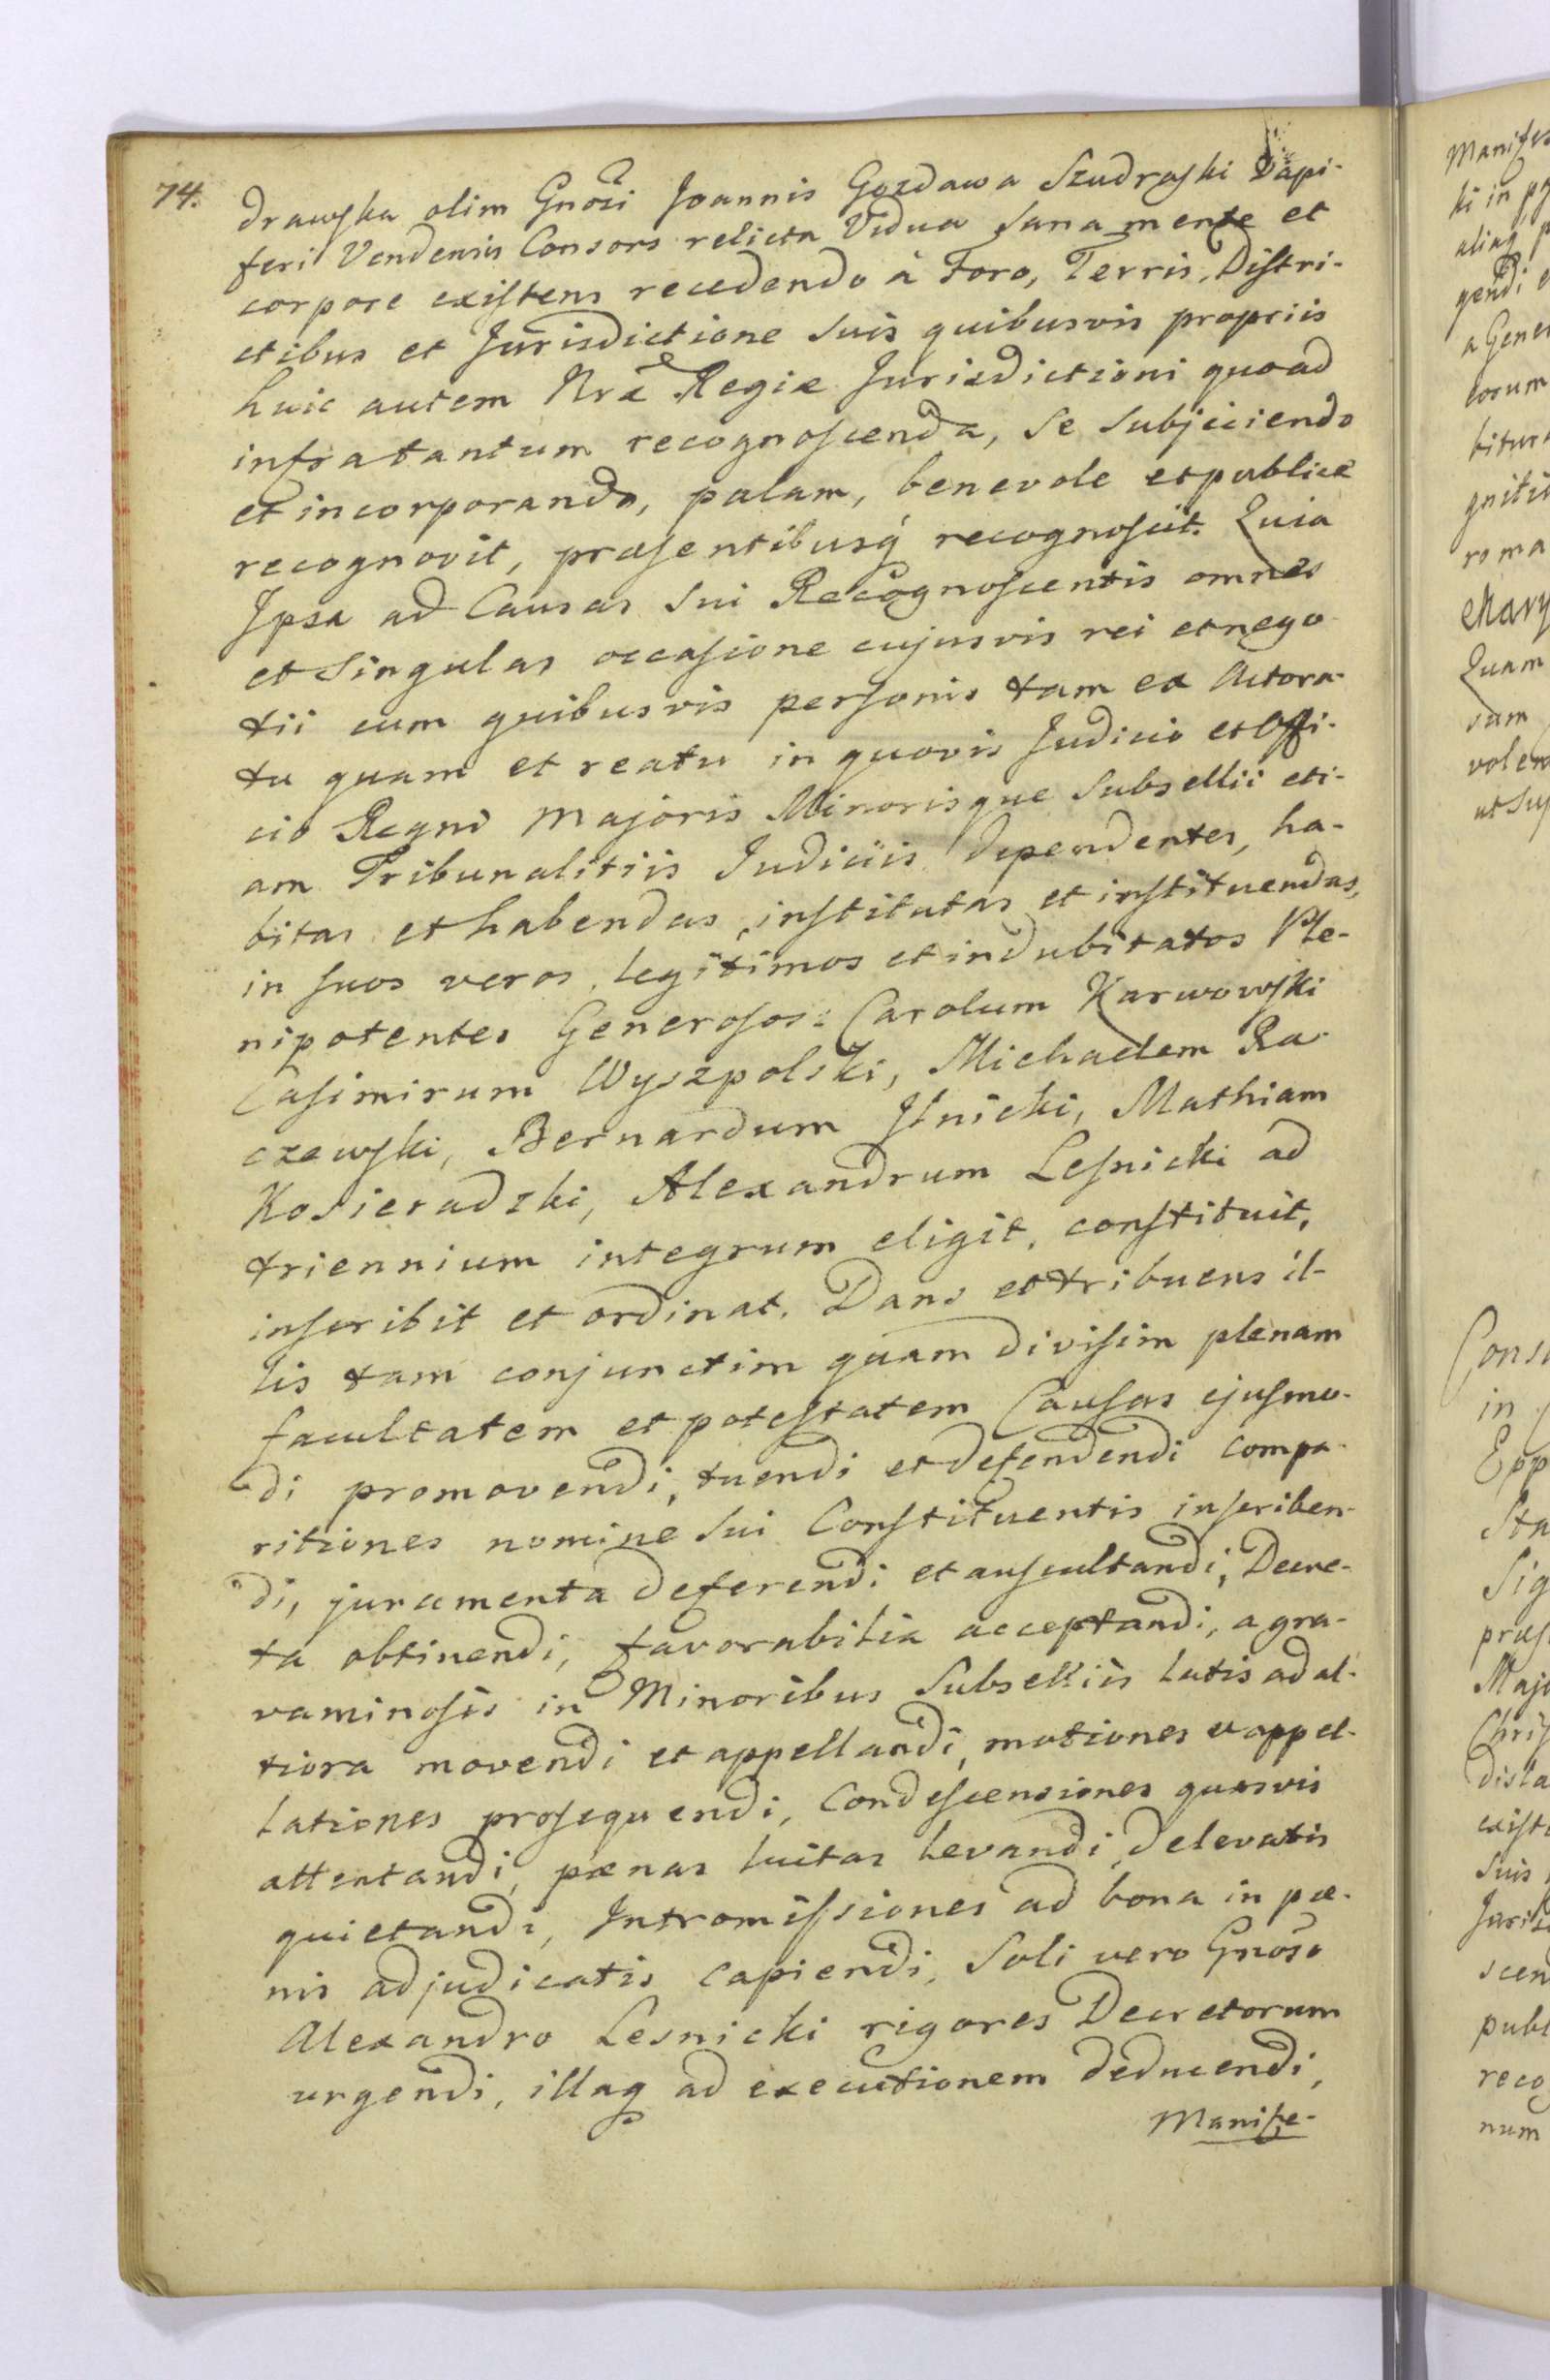 74.
drawska olim Gnosi Joannis Gozdawa Szudraski Dapi-
feri Vendensis Consors relicta Vidua sana mente et
corpore existens recedendo à Foro, Terris, Distri-
ctibus et Jurisdictione suis quibusvis propriis
huic autem Nrae Regiae Jurisdictioni quoad
infratantum recognoscenda, se subjiciendo
et incorporando, palam, benevole et publice
recognovit, praesentibusq recognoscit. Quia
Ipsa ad Causas sui Recognoscentis omnes
et singulas occasione cujusvis rei et nego
tii cum quibusvis personis tam ex Actora-
tu quam et reatu in quovis Judicio et Offi-
cio Regni Majoris Minorisque Subsellii eti-
am Tribunalitiis Judiciis dependentes, ha-
bitas et habendas, institutas et instituendas,
in suos veros, legitimos et indubitatos Ple-
nipotentes Generosos: Carolum Karwowski
Casimirum Wyszpolski, Michaelem Ra-
czewski, Bernardum Ilnicki, Mathiam
Kosieradzki, Alexandrum Lesnicki ad
triennium integrum eligit, constituit,
inscribit et ordinat. Dans et tribuens il-
lis tam conjunctim quam divisim plenam
facultatem et potestatem Causas ejusmo-
di promovendi, tuendi et defendendi compa-
ritiones nomine sui Constituentis inscriben-
di, juramenta deferendi et auscultandi, Decre-
ta obtinendi, favorabilia acceptandi, a gra-
vaminosis in Minoribus Subselliis latis ad al-
tiora movendi et appellandi, motiones et appel-
lationes prosequendi, Condescensiones quasvis
attentandi, paenas luitas levandi, de levatis
quietandi, Intromissiones ad bona in pae-
nis adjudicatis capiendi, Soli vero Gnoso
Alexandro Lesnicki rigores Decretorum
urgendi, illaq ad executionem deducendi,
Manife-
Manifes
ki in
aliaq
gendi
a Gener
eorum
bitur
gnitio
roma
Quam
volen
ut sup
Consi
in
Epp
Sta
Sig
praes
Majo
Chris
disla
existe
suis
Juris
scen
publ
reco
num